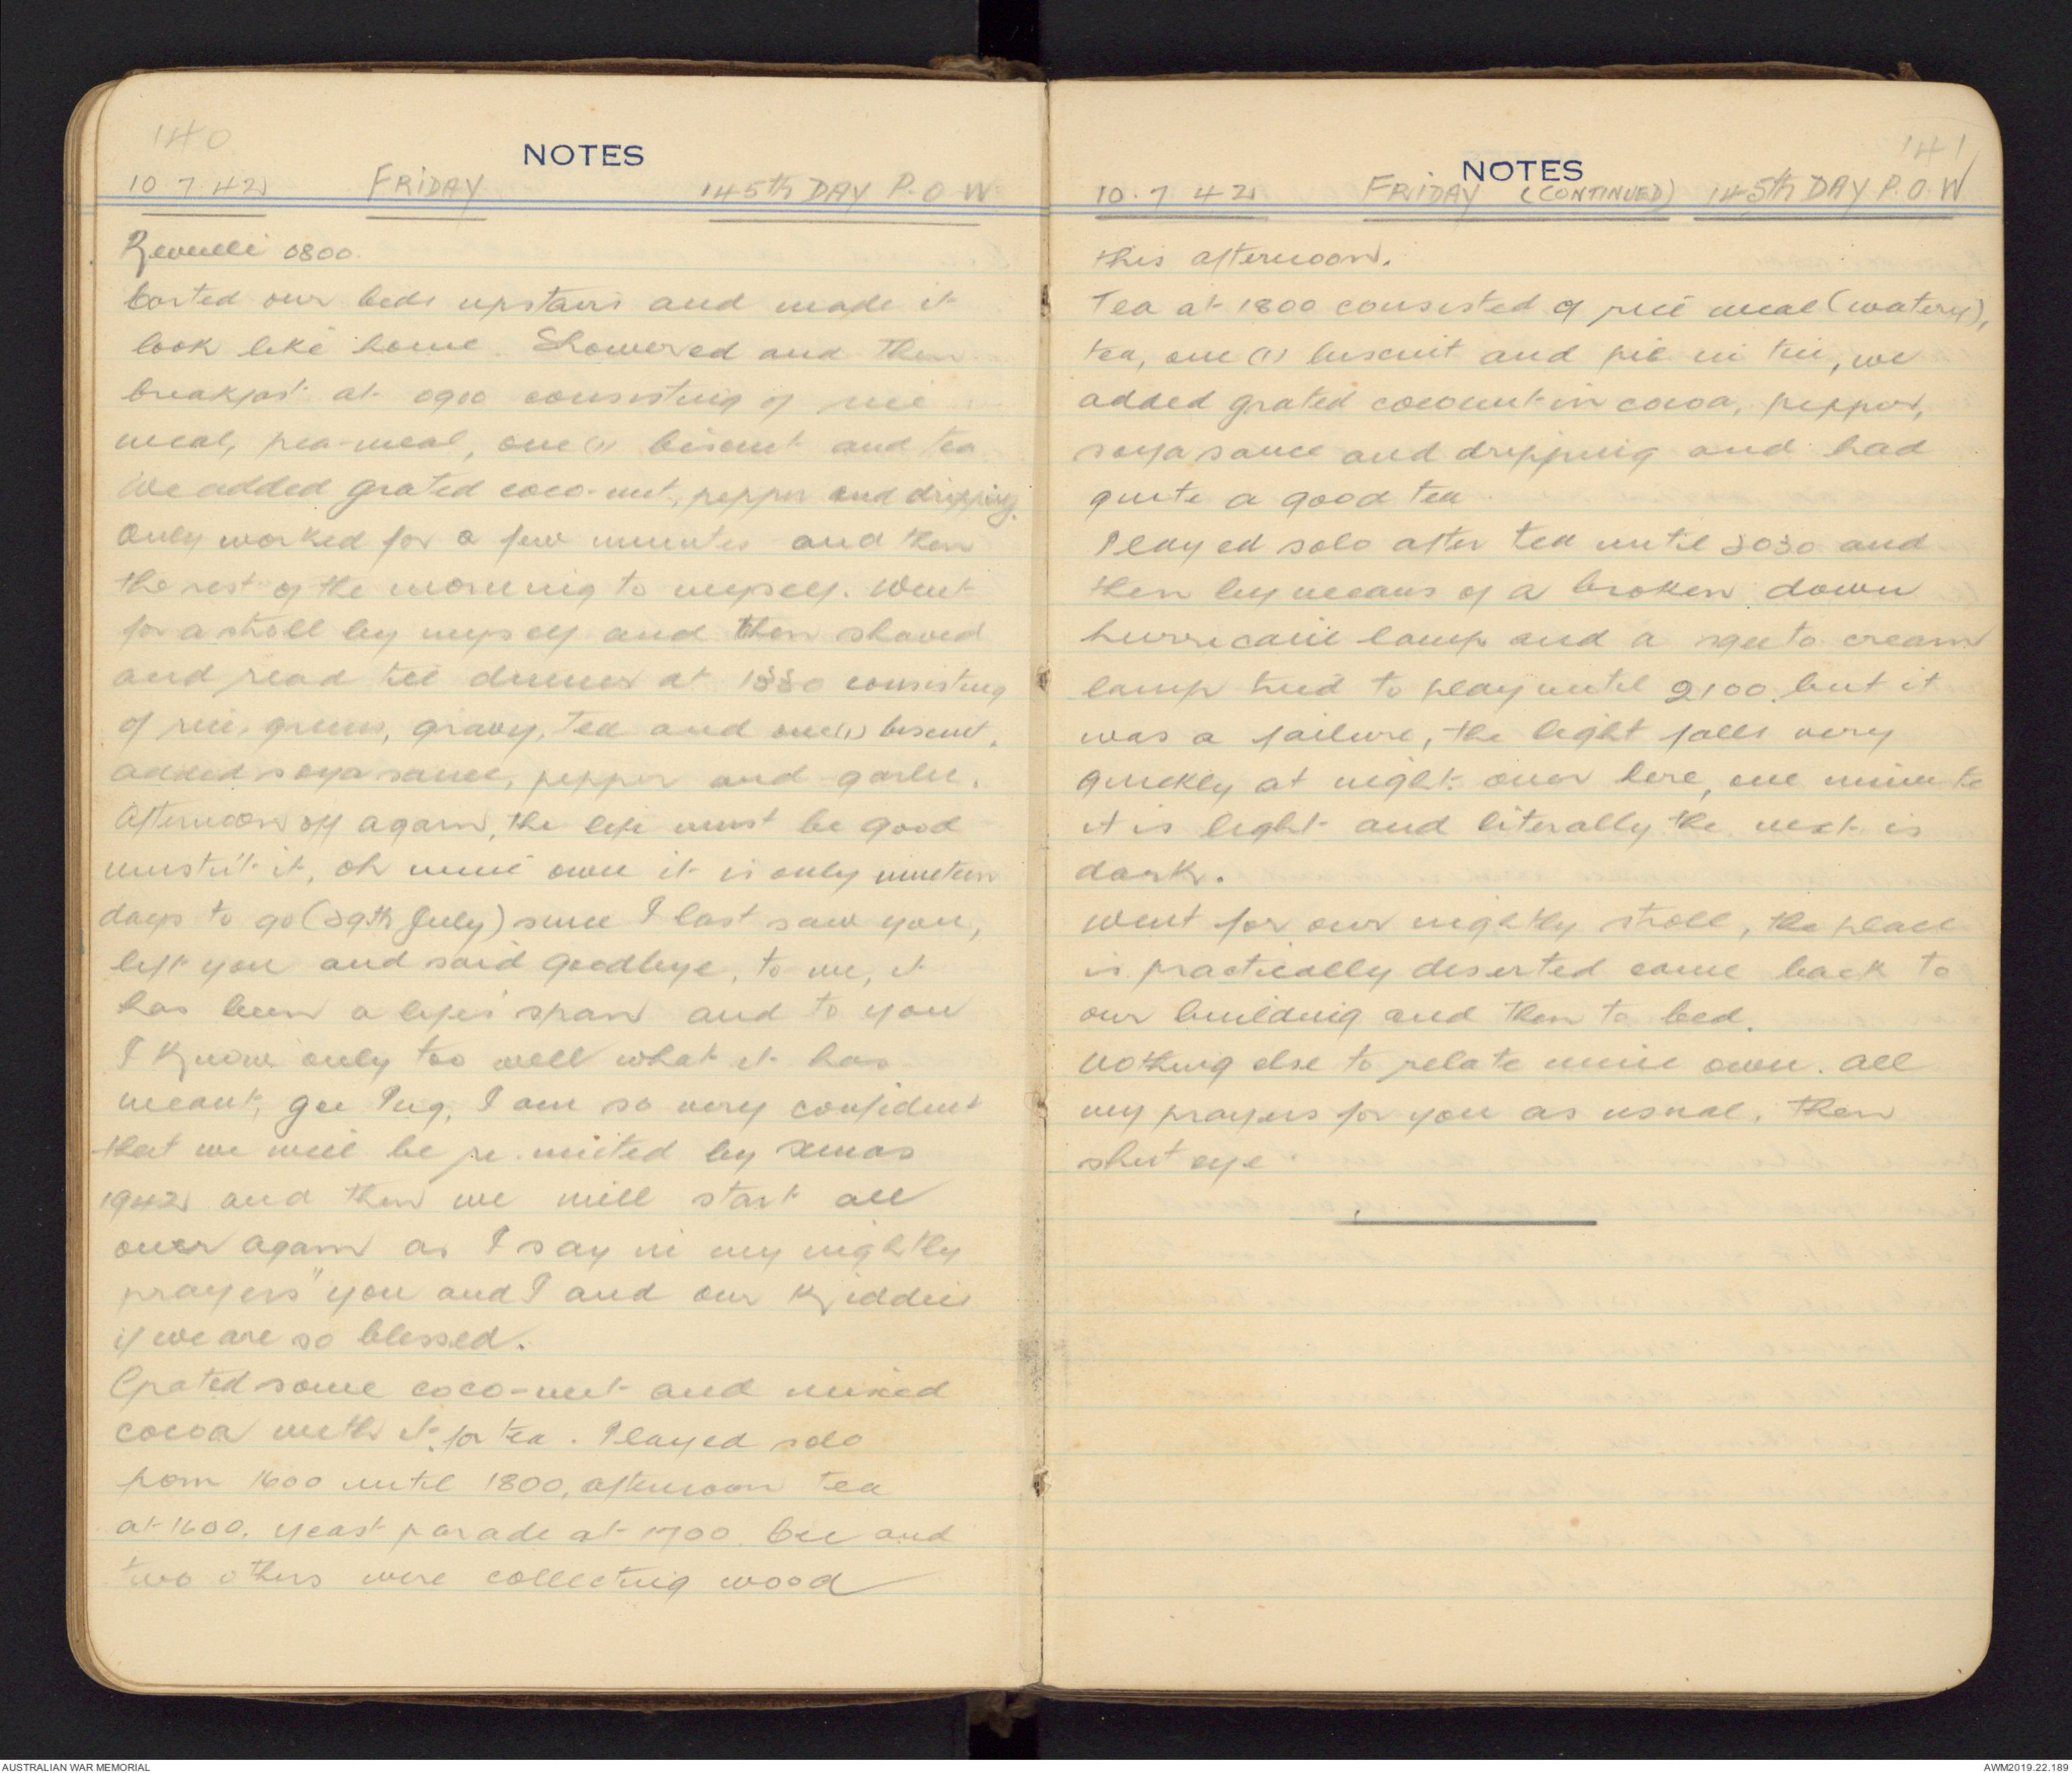 140
NOTES
10 7 42 FRIDAY 145th DAY P.O.W
Reveille 0800.
Carted our beds upstairs and made it
look like home. Showered and then
breakfast at 0900 consisting of rice
meal, pea-meal, one (1) biscuit and tea
We added grated coco-nut, pepper and dripping.
Only worked for a few minutes and then
the rest of the morning to myself. Went
for a stroll by myself and then shaved
and read till dinner at 1330 consisting
of rice, greens, gravy, tea and one (1) biscuit,
added soya sauce, pepper and garlic.
Afternoon off again, the life must be good
mustn't it, oh mine own it is only nineteen
days to go (29th July) since I last saw you,
left you and said goodbye, to me, it
has been a life's span and to you
I know only too well what it has
meant, gee Pug, I am so very confident
that we will be re-united by xmas
1942 and then we will start all
over again as I say in my nightly
prayers "you and I and our kiddies
if we are so blessed.
Grated some coco-nut and mixed
cocoa with it for tea. Played solo
from 1600 until 1800, afternoon tea
at 1600, yeast parade at 1700. and
two others were collecting wood
141
NOTES
10.7 42 FRIDAY (CONTINUED) 145th DAY P.O.W
this afternoon.
Tea at 1800 consisted of rice meal (watery),
tea, one (1) biscuit and pie in tin, we
added grated coconut in cocoa, pepper,
soya sauce and dripping and had
quite a good tea.
Played solo after tea until 2030 and
then by means of a broken down
hurricane lamp and a cream
lamp tried to play until 2100 but it
was a failure, the light falls very
quickly at night over here, one minute
it is light and literally the next is
dark.
Went for our nightly stroll, the place
is practically deserted came back to
our building and then to bed.
Nothing else to relate mine own. All
my prayers for you as usual, then
shut eye.
AUSTRALIAN WAR MEMORIAL
AWM2019.22.189